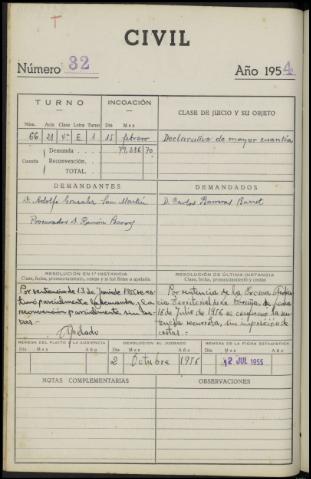 T
CIVIL
Número 32 Año 1954
TURNO INCOACIÓN CLASE DE JUICIO Y SU OBJETO
Núm. Auto Clase Letra Turno Día Mes
66 28 4ª E 1 15 febrero Declarativo de mayor cuantía
Demanda 79.286 70
Cuantía Reconvención.
TOTAL.
DEMANDANTES DEMANDADOS
D. Adolfo González San Martín D. Carlos Barreras Barret
Procurador D. Ramón
RESOLUCIÓN EN 1.ª INSTANCIA RESOLUCIÓN DE ÚLTIMA INSTANCIA
Clase, fecha, pronunciamiento, costas y si fué firme o apelada Clase, fecha, pronunciamiento y costas
Por sentencia de 13 de Junio de 1955 se es Por sentencia de la Excma. Audien
timó parcialmente la demanda, y la cia Territorial de La Coruña, de fecha
reconvención parcialmente, sin cos 16 de Julio de 1956 se confirmó la sen
tas tencia recurrida, sin imposición de
Apelado costas
REMESA DEL PLEITO A LA AUDIENCIA DEVOLUCIÓN AL JUZGADO REMESA DE LA FICHA ESTADÍSTICA
Día Mes Año Día Mes Año Día Mes Año
2 Octubre 1956 12 JUL 1955
NOTAS COMPLEMENTARIAS OBSERVACIONES